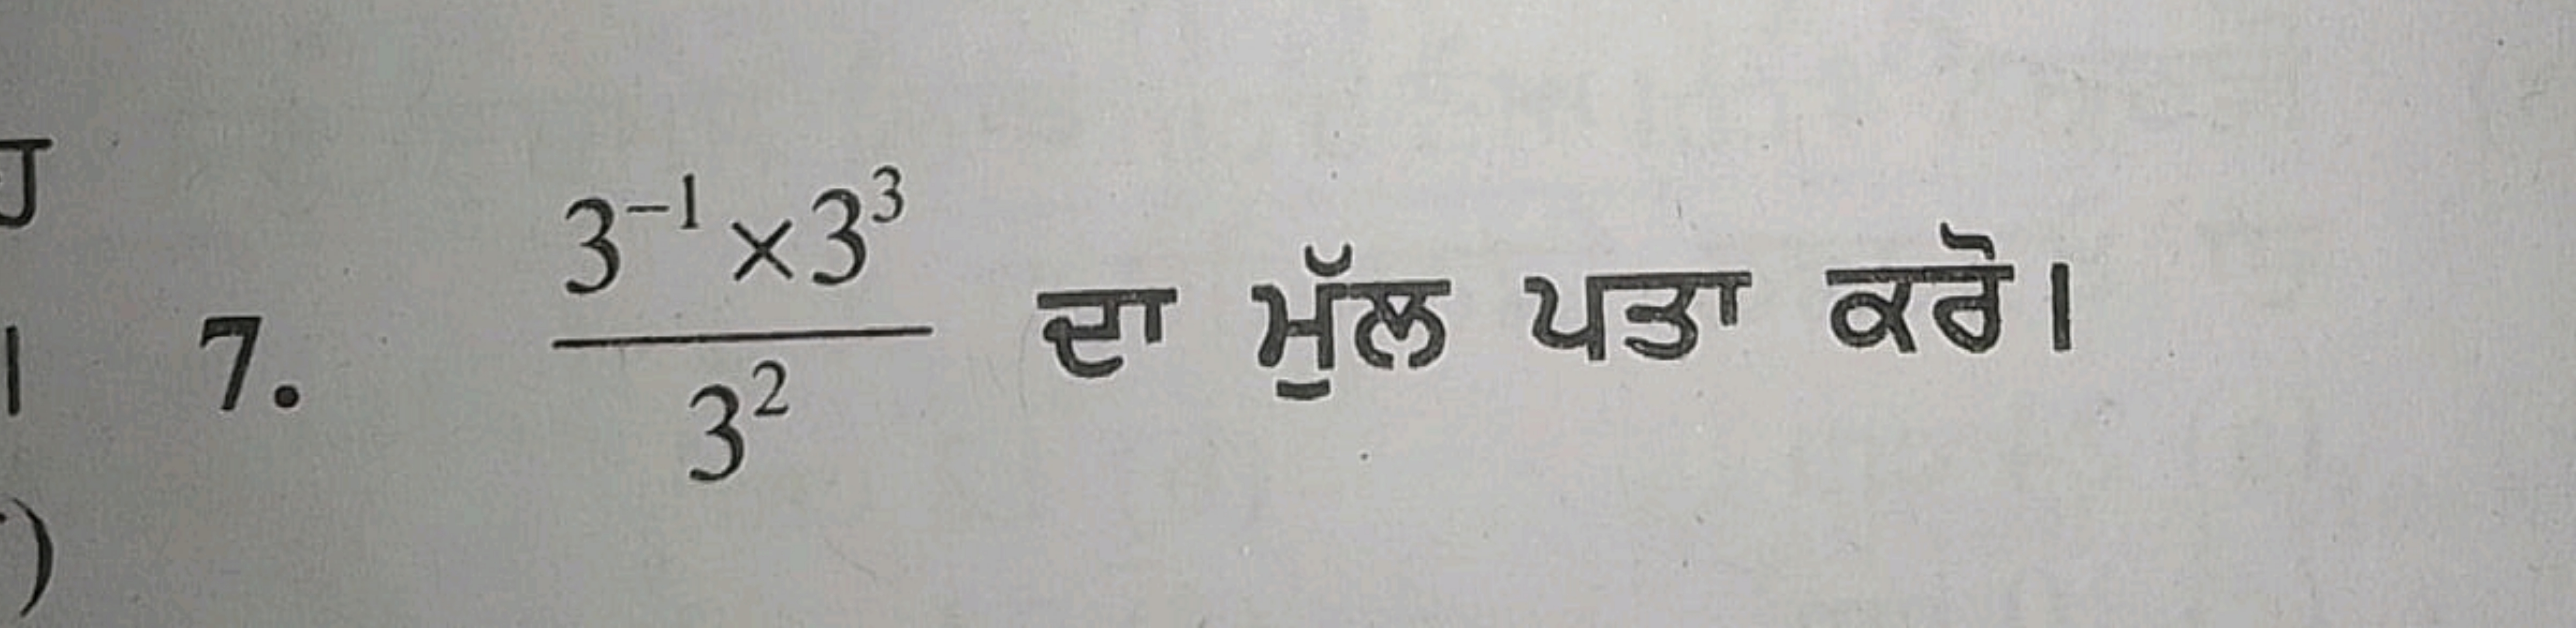 ਹ
। 7. $\frac{3^{-1} \times 3^3}{3^2}$ ਦਾ ਮੁੱਲ ਪਤਾ ਕਰੋ।
)